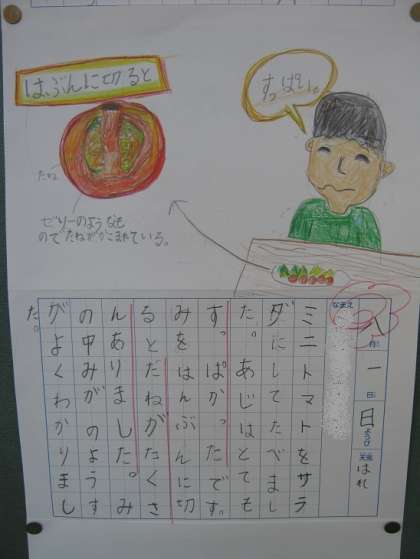 はんぶんに切ると
すっぱい。
たね
ゼリーのようなも
のでたねがかこまれている。
八月一日日よう日天気はれ
なまえ
ミニトマトをサラ
ダにしてたべまし
た。あじはとても
すっぱかったです。
みをはんぶんに切
るとたねがたくさ
んありました。み
の中みがのようす
がよくわかりまし
た。